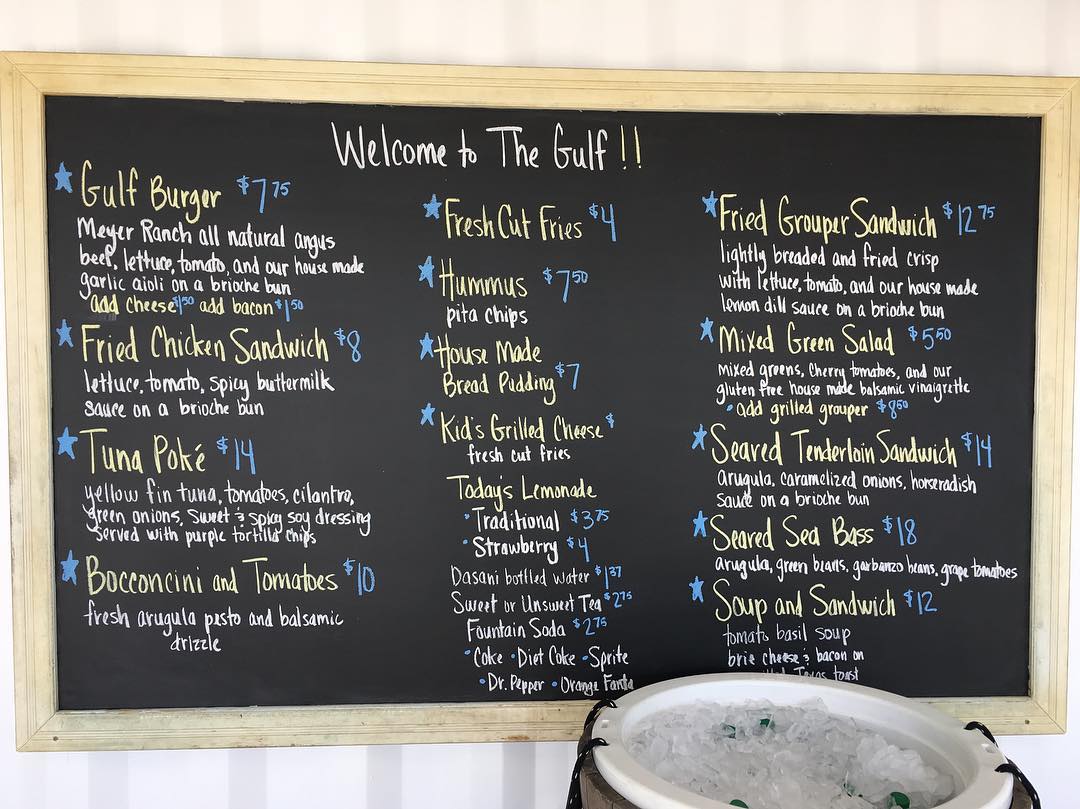 Welcome to The Gulf !!
Gulf Burger $7.75
Meyer Ranch all natural angus
beef, lettuce, tomato, and our house made
garlic aioli on a brioche bun
add cheese $1.50 add bacon $1.50
Fried Chicken Sandwich $8
lettuce, tomato, spicy buttermilk
sauce on a brioche bun
Tuna Poké $14
yellow fin tuna, tomatoes, cilantro,
green onions, sweet & spicy soy dressing
Served with purple tortilla chips
Bocconcini and Tomatoes $10
fresh arugula pesto and balsamic
drizzle
Fresh Cut Fries $4
Hummus $7.50
pita chips
House Made
Bread Pudding $7
Kid's Grilled Cheese $
fresh cut fries
Today's Lemonade
• Traditional $3.75
• Strawberry $4
Dasani bottled water $1.37
Sweet or Unsweet Tea $2.75
Fountain Soda $2.75
• Coke • Diet Coke • Sprite
• Dr. Pepper • Orange Fanta
Fried Grouper Sandwich $12.75
lightly breaded and fried crisp
with lettuce, tomato, and our house made
lemon dill sauce on a brioche bun
Mixed Green Salad $5.50
mixed greens, cherry tomatoes, and our
gluten free house made balsamic vinaigrette
• add grilled grouper $8.50
Seared Tenderloin Sandwich $14
arugula, caramelized onions, horseradish
sauce on a brioche bun
Seared Sea Bass $18
arugula, green beans, garbanzo beans, grape tomatoes
Soup and Sandwich $12
tomato basil soup
brie cheese & bacon on
Texas toast